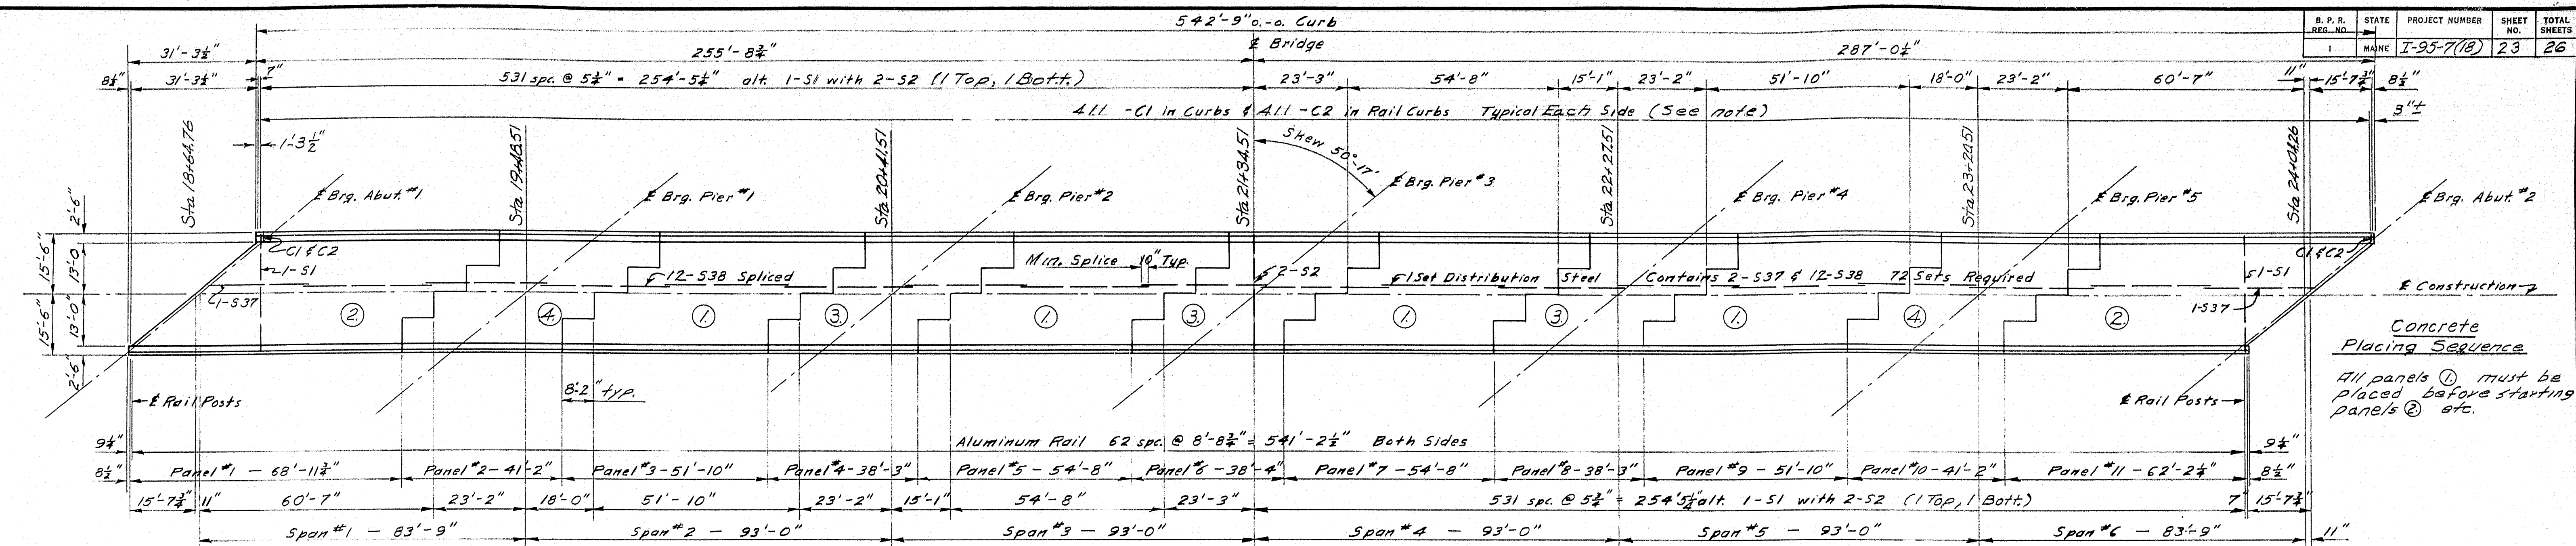 542'-9" o.-o. Curb
B. P. R. REG. NO. STATE PROJECT NUMBER SHEET NO. TOTAL SHEETS
1 MAINE I-95-7(18) 23 26
31'-3½" 255'-8¾" ℄ Bridge 287'-0¼"
8½" 31'-3½" 7" 531 spc. @ 5¾" = 254'-5¼" alt. 1-S1 with 2-S2 (1 Top, 1 Bott.) 23'-3" 54'-8" 15'-1" 23'-2" 51'-10" 18'-0" 23'-2" 60'-7" 11" 15'-7¾" 8½"
411 -C1 in Curbs & 411 -C2 in Rail Curbs Typical Each Side (See note) 3"±
1'-3½"
Sta 18+64.76 Sta 19+48.51 Sta 20+41.51 Sta 21+34.51 Skew 50°-17' Sta 22+27.51 Sta 23+20.51 Sta 24+04.26
℄ Brg. Abut. #1 ℄ Brg. Pier #1 ℄ Brg. Pier #2 ℄ Brg. Pier #3 ℄ Brg. Pier #4 ℄ Brg. Pier #5 ℄ Brg. Abut. #2
2'-6" 15'-6" 13'-0 15'-6" 13'-0" 2'-6"
C1 & C2 C1 & C2
1-S1 12-S38 Spliced Min. Splice 10" Typ. 2-S2 1 Set Distribution Steel Contains 2-S37 & 12-S38 72 Sets Required 1-S1
1-S37 ℄ Construction
1-S37
② ④ ① ③ ① ③ ① ③ ① ④ ②
Concrete
Placing Sequence
All panels ① must be
placed before starting
panels ② etc.
8'-2" typ.
℄ Rail Posts ℄ Rail Posts
9¼" Aluminum Rail 62 spc. @ 8'-8¾" = 541'-2½" Both Sides 9¼"
8½" Panel #1 — 68'-11¾" Panel #2 - 41'-2" Panel #3 - 51'-10" Panel #4 - 38'-3" Panel #5 - 54'-8" Panel #6 - 38'-4" Panel #7 - 54'-8" Panel #8 - 38'-3" Panel #9 - 51'-10" Panel #10 - 41'-2" Panel #11 - 62'-2¼" 8½"
15'-7¾" 11" 60'-7" 23'-2" 18'-0" 51'-10" 23'-2" 15'-1" 54'-8" 23'-3" 531 spc. @ 5¾" = 254'5¼" alt. 1-S1 with 2-S2 (1 Top, 1 Bott.) 7" 15'-7¾"
Span #1 — 83'-9" Span #2 — 93'-0" Span #3 — 93'-0" Span #4 — 93'-0" Span #5 — 93'-0" Span #6 — 83'-9" 11"